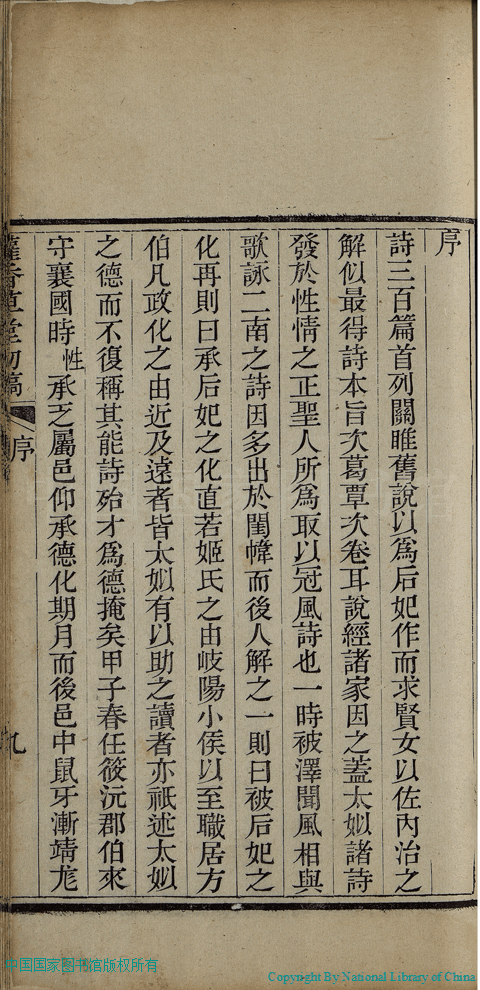 序
詩三百篇首列關雎舊說以爲后妃作而求賢女以佐內治之
解似最得詩本旨次葛覃次卷耳說經諸家因之蓋太姒諸詩
發於性情之正聖人所爲取以冠風詩也一時被澤聞風相與
歌詠二南之詩因多出於閨幃而後人解之一則曰被后妃之
化再則曰承后妃之化直若姬氏之由岐陽小侯以至職居方
伯凡政化之由近及遠者皆太姒有以助之讀者亦祇述太姒
之德而不復稱其能詩殆才爲德掩矣甲子春任筱沅郡伯來
守襄國時性承乏屬邑仰承德化期月而後邑中鼠牙漸靖尨
香草堂初稿
序
九
中国国家图书馆版权所有
Copyright By National Library of China